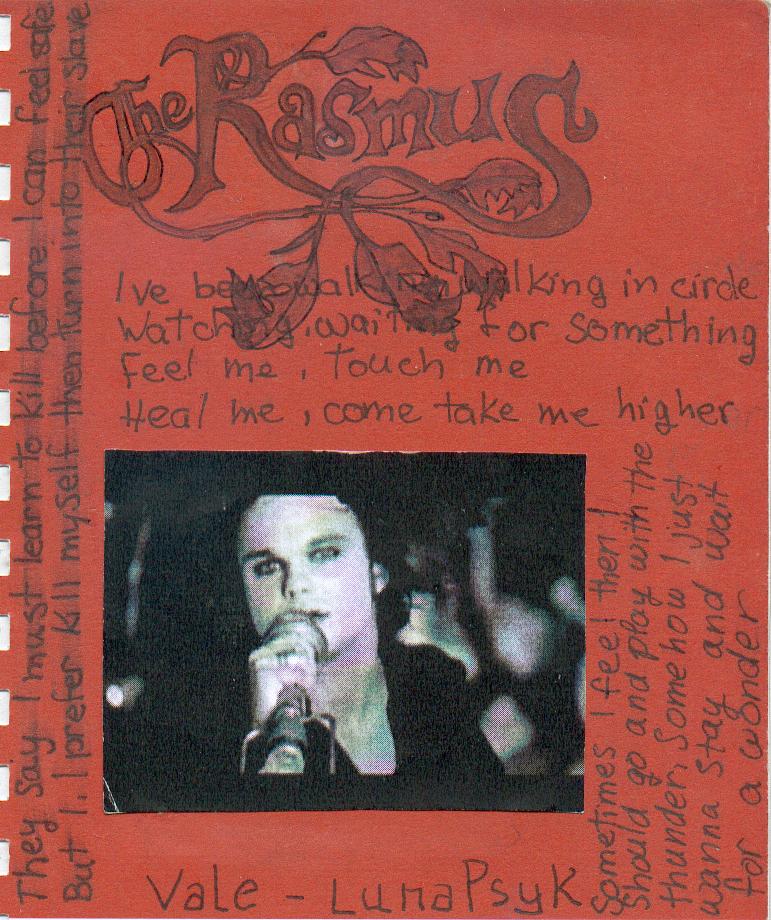 The Rasmus
I've been walking, walking in circle
Watching, waiting for something
Feel me, Touch me
Heal me, come take me higher
They say I must learn to kill before I can feel safe
But I, I prefer kill myself then turn into their slave
Sometimes I feel then I
Should go and play with the
thunder, Somehow I just
wanna stay and wait
for a wonder
Vale - LunaPsyK